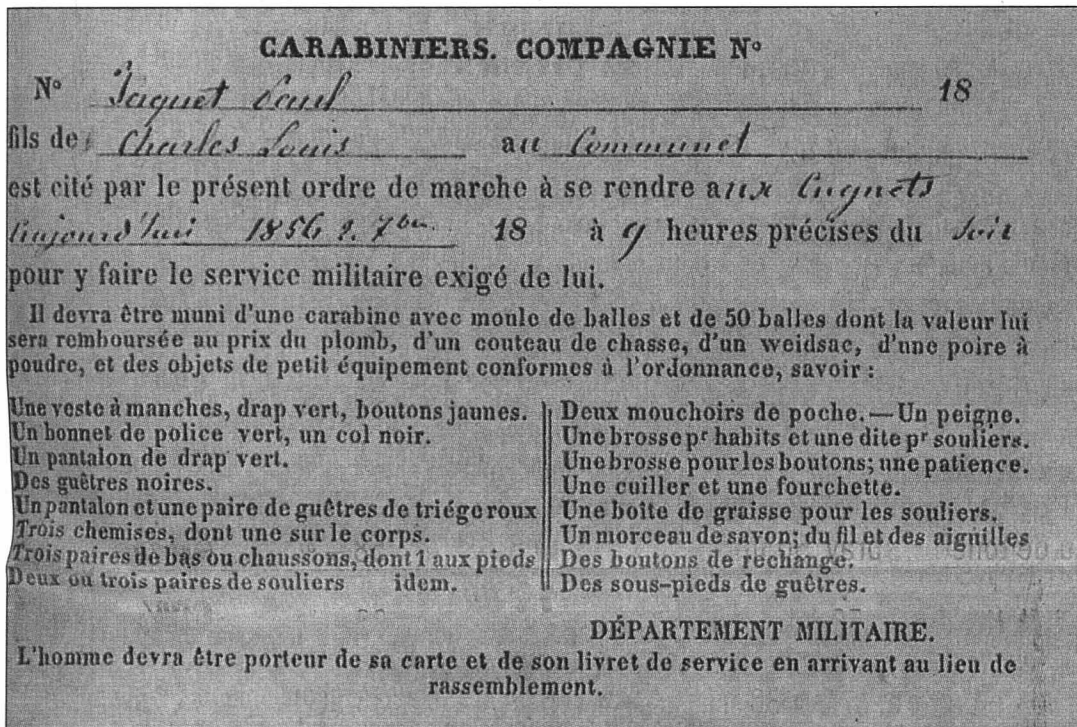 CARABINIERS. COMPAGNIE N°
N° Jaquet Paul 18
fils de Charles Louis au Communet
est cité par le présent ordre de marche à se rendre aux
Aujourd'hui 1856 2. 7bre 18 à 9 heures précises du soir
pour y faire le service militaire exigé de lui.
Il devra être muni d'une carabine avec moule de balles et de 50 balles dont la valeur lui
sera remboursée au prix du plomb, d'un couteau de chasse, d'un weidsac, d'une poire à
poudre, et des objets de petit équipement conformes à l'ordonnance, savoir :
Une veste à manches, drap vert, boutons jaunes.
Un bonnet de police vert, un col noir.
Un pantalon de drap vert.
Des guêtres noires.
Un pantalon et une paire de guêtres de triége roux
Trois chemises, dont une sur le corps.
Trois paires de bas ou chaussons, dont 1 aux pieds
Deux ou trois paires de souliers idem.
Deux mouchoirs de poche. — Un peigne.
Une brosse pr habits et une dite pr souliers.
Une brosse pour les boutons; une patience.
Une cuiller et une fourchette.
Une boîte de graisse pour les souliers.
Un morceau de savon; du fil et des aiguilles
Des boutons de rechange.
Des sous-pieds de guêtres.
DÉPARTEMENT MILITAIRE.
L'homme devra être porteur de sa carte et de son livret de service en arrivant au lieu de
rassemblement.